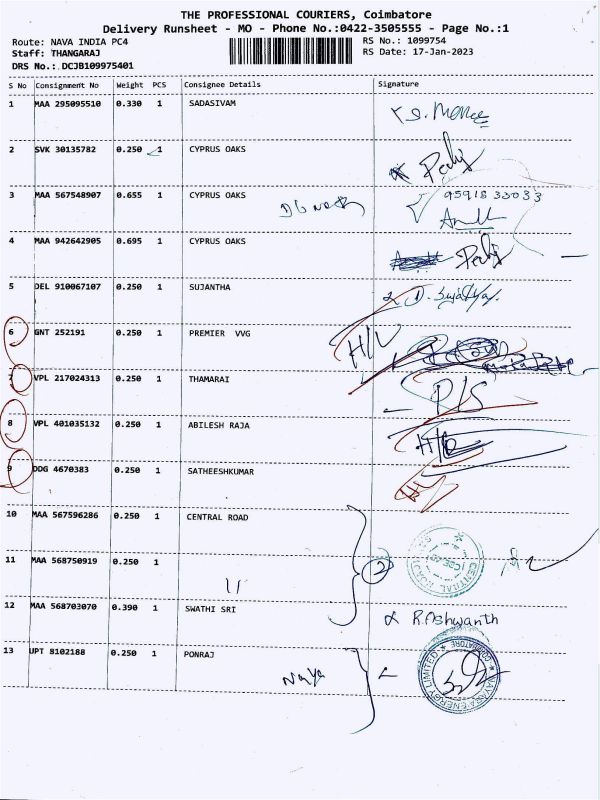 THE PROFESSIONAL COURIERS, Coimbatore
Delivery Runsheet - MO - Phone No.:0422-3505555 - Page No.:1
Route: NAVA INDIA PC4
RS No.: 1099754
Staff: THANGARAJ
RS Date: 17-Jan-2023
DRS No.: DCJB109975401
S No Consignment No Weight PCS Consignee Details Signature
1 MAA 295095510 0.330 1 SADASIVAM
2 SVK 30135782 0.250 1 CYPRUS OAKS
3 MAA 567548907 0.655 1 CYPRUS OAKS 95918 33033
4 MAA 942642905 0.695 1 CYPRUS OAKS
5 DEL 910067107 0.250 1 SUJANTHA D. Sujatha
6 GNT 252191 0.250 1 PREMIER VVG H/V
7 VPL 217024313 0.250 1 THAMARAI P/S
8 VPL 401035132 0.250 1 ABILESH RAJA
9 DDG 4670383 0.250 1 SATHEESHKUMAR
10 MAA 567596286 0.250 1 CENTRAL ROAD
11 MAA 568750919 0.250 1 11 2
12 MAA 568703070 0.390 1 SWATHI SRI R. Ashwanth
13 UPT 8102188 0.250 1 PONRAJ
Naya
NAYARA ENERGY LIMITED